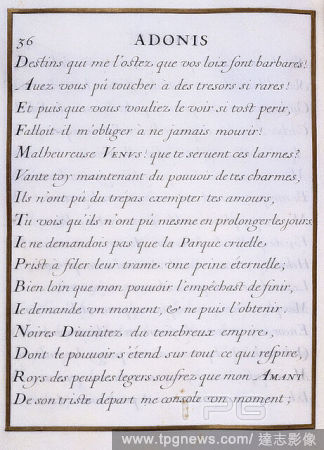 36 ADONIS
Destins qui me l'ostez, que vos loix sont barbares!
Auez vous pû toucher a des tresors si rares!
Et puis que vous vouliez le voir si tost perir,
Falloit il m'obliger a ne jamais mourir!
Malheureuse VENVS! que te seruent ces larmes?
Vante toy maintenant du pouuoir de tes charmes,
Ils n'ont pû du trepas exempter tes amours,
Tu vois qu'ils n'ont pû mesme en prolonger les jours
Ie ne demandois pas que la Parque cruelle,
Prist à filer leur trame vne peine éternelle;
Bien loin que mon pouuoir l'empéchast de finir,
Ie demande vn moment, & ne puis l'obtenir.
Noires Diuinitez du tenebreux empire,
Dont le pouuoir s'étend sur tout ce qui respire,
Roys des peuples legers soufrez que mon AMANT
De son triste depart me console vn moment;
PG
www.tpgnews.com / 達志影像